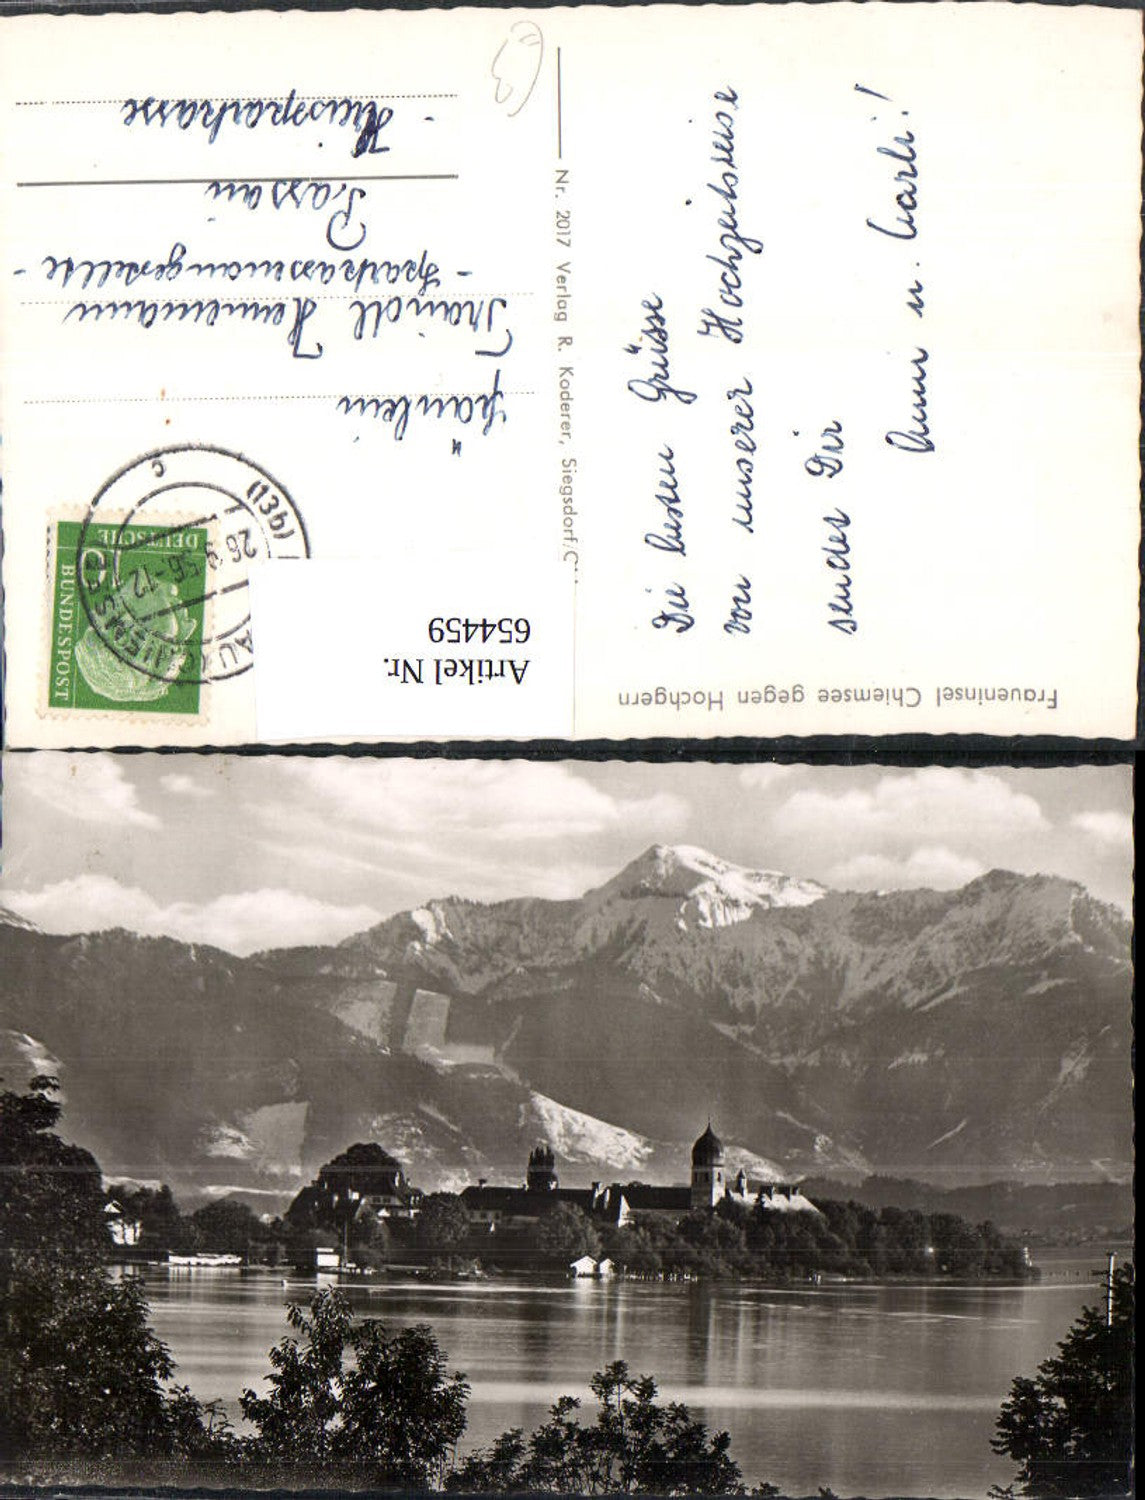 Fraueninsel Chiemsee gegen Hochgern
Die besten Grüsse
von unserer Hochzeitsreise
sendet Dir
Anni u. Karli!
Nr. 2017 Verlag R. Koderer, Siegsdorf/C
DEUTSCHE
BUNDESPOST
10
(13b)
26.9.56-12
c
Fräulein
Traudl
- Sparkassenangestellte -
Passau
- Kreissparkasse
Artikel Nr.
654459